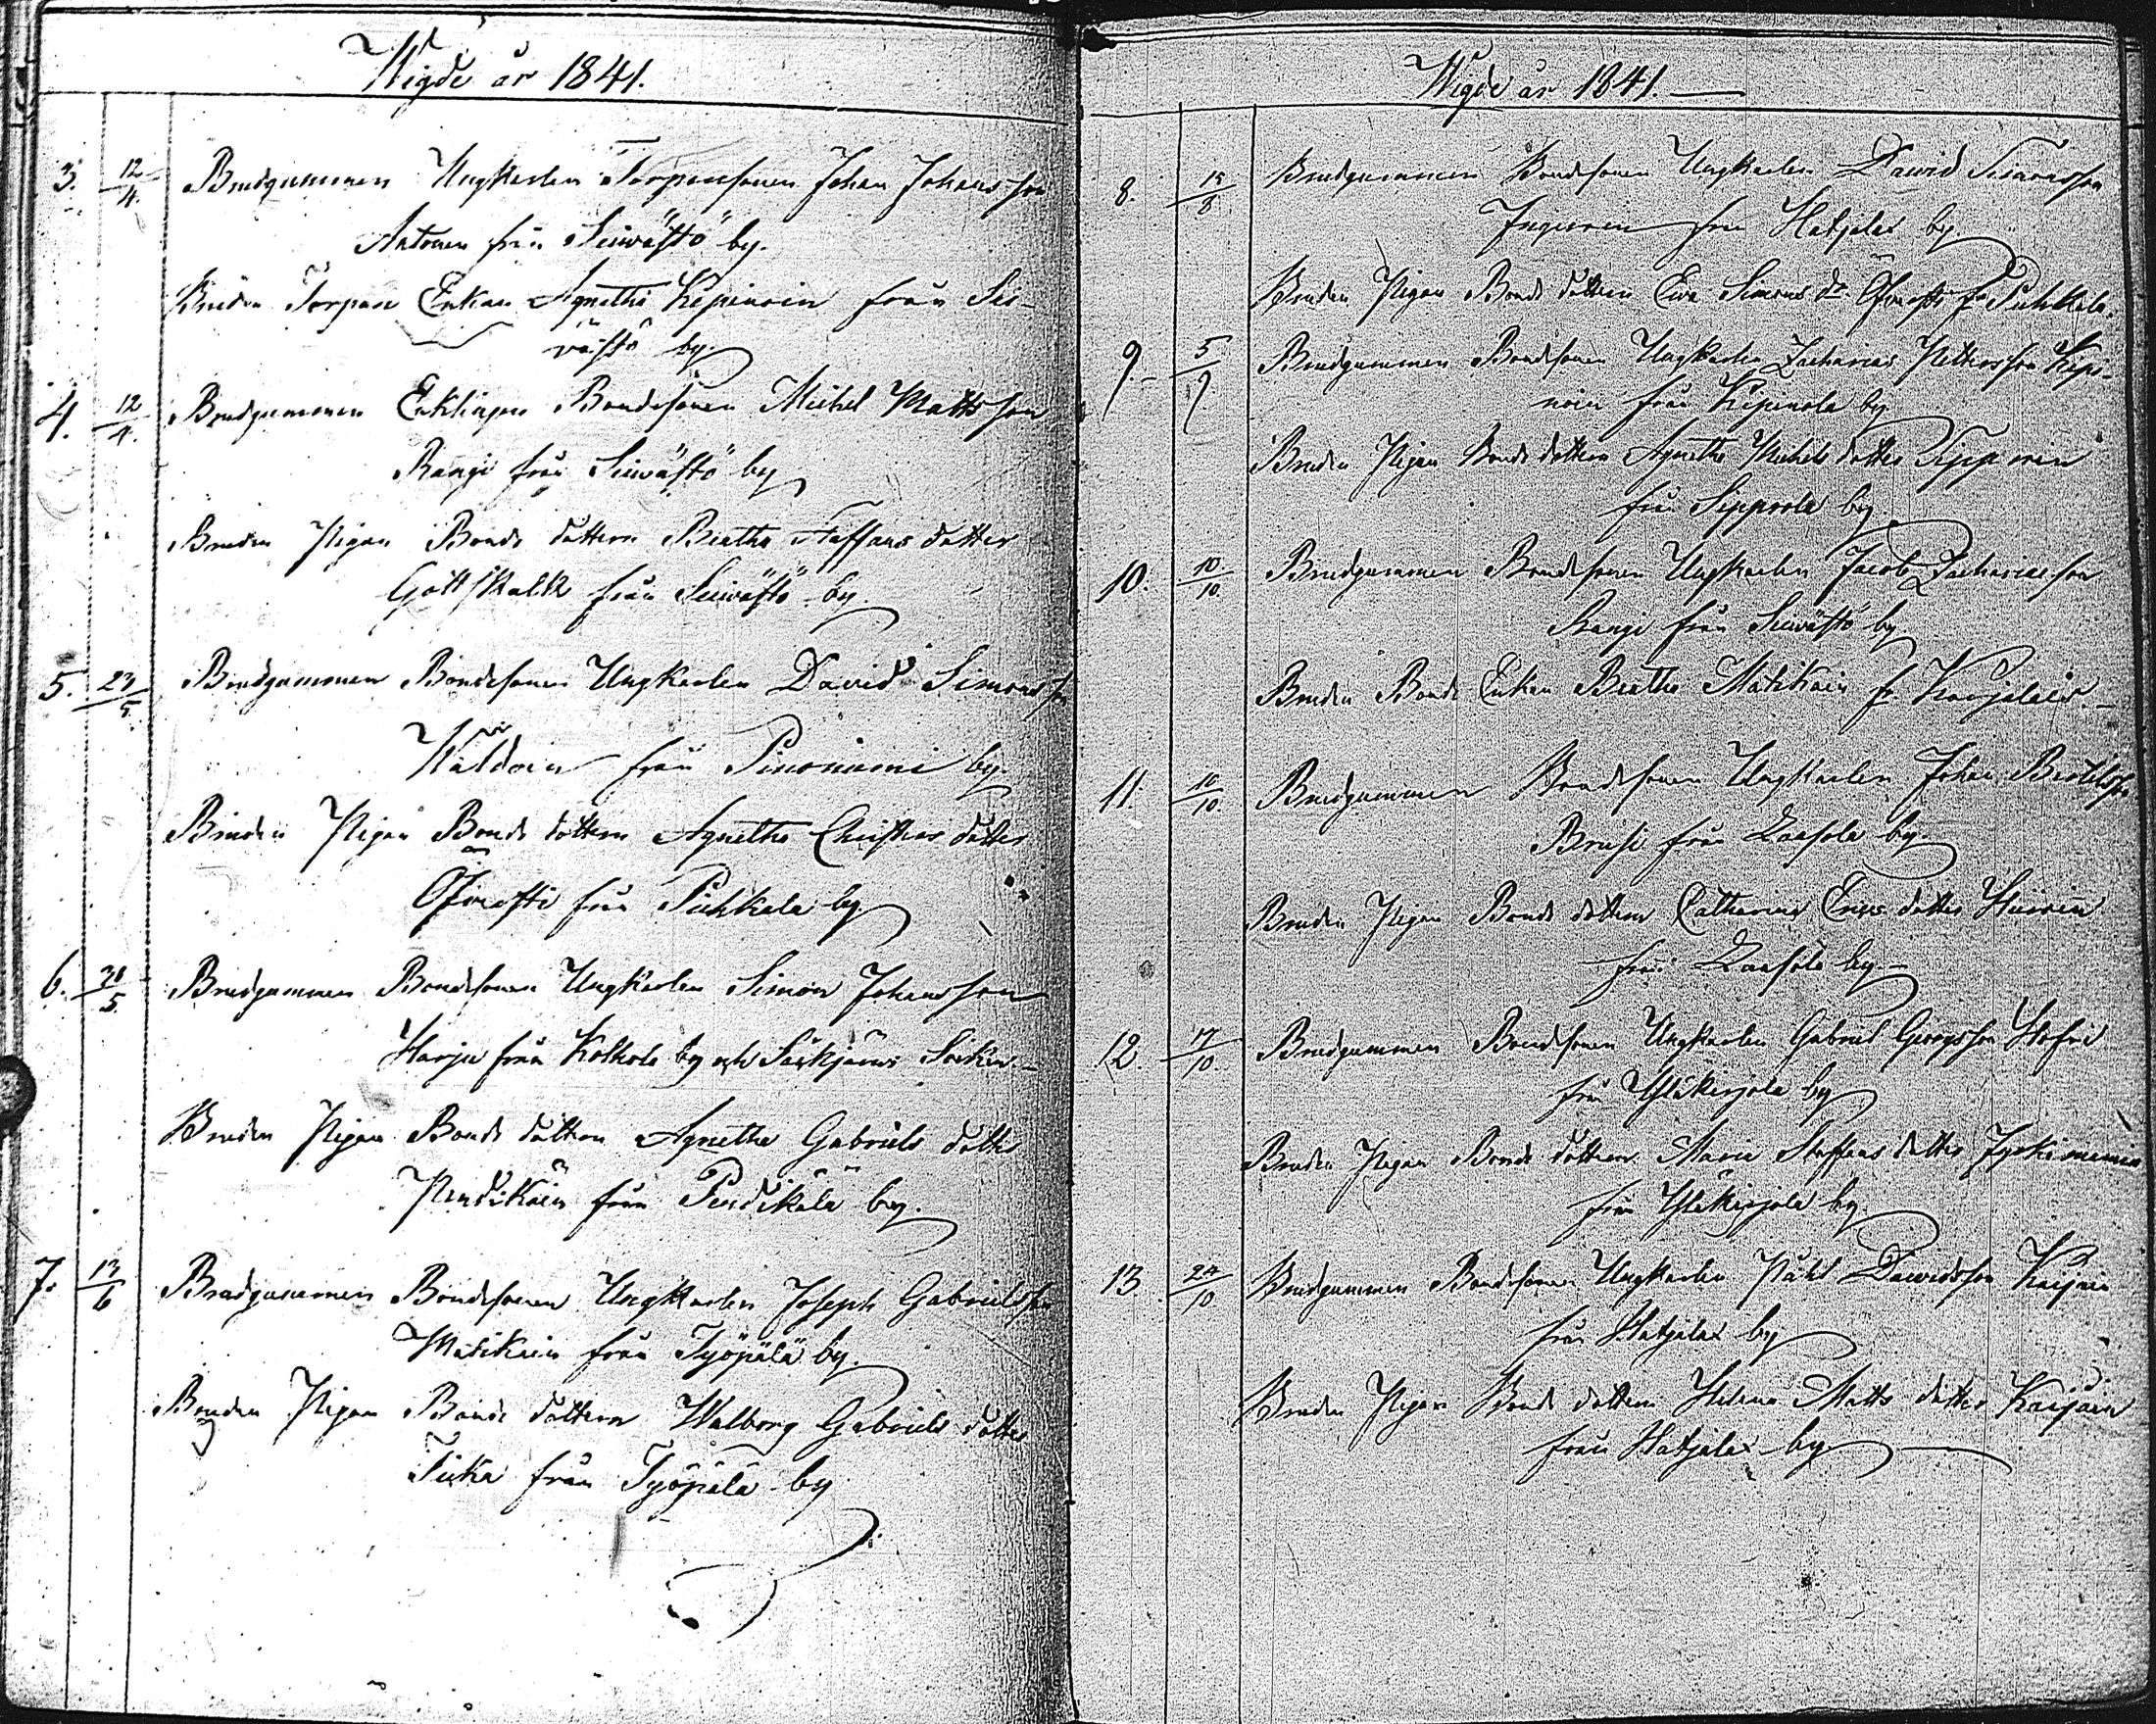 Wigde år 1841.
3. 12/4. Brudgummen Ungkarlen Torparesonen Johan Johansson
Antonen från Seivästö by.
Bruden Torpare Enkan Agnetha Kepinoin från Sei-
västö by.
4. 12/4. Brudgummen Enklingen Bondesonen Michel Mattsson
Rangi från Seivästö by
Bruden Pigan Bonde dottern Beatha Staffans dotter
Gottskalk från Seivästö by.
5. 23/5. Brudgummen Bondesonen Ungkarlen David Simonsson
från Pinoniemi by.
Bruden Pigan Bonde dottern Agnetha Christers dotter
Öfversti från Pihkala by
6. 5. Brudgummen Bondesonen Ungkarlen Simon Johansson
Harju från Kolkola by och Säkjärvi Socken.
Bruden Pigan Bonde dottern Agnetha Gabriels dotter
Pendikäin från Pendikälä by.
7. 13/6 Brudgummen Bondesonen Ungkarlen Joseph Gabrielsson
Matikain från Työpälä by.
Bruden Pigan Bonde dottern Walborg Gabriels dotter
från Työpälä by
Wigde år 1841.
8. 15/8. Brudgummen Bondesonen Ungkarlen David Simonsson
Inguren från Hatjalax by
Bruden Pigan Bonde dottern Eva Simons dr. Öfversti fr. Pihkala.
9. 5/9. Brudgummen Bondesonen Ungkarlen Zacharias Pettersson Kepi-
noin från Kepinola by.
Bruden Pigan Bonde dottern Agnetha Michels dotter Sipponen
från Sippola by.
10. 10/10. Brudgummen Bondesonen Ungkarlen Jacob Zachariasson
Rangi från Seivästö by
Bruden Bonde Enkan Beatha Matikain fr. Karjalais.
11. 10/10. Brudgummen Bondesonen Ungkarlen Johan Bertilsson
Brusi från Laasola by.
Bruden Pigan Bonde dottern Catharina Erics dotter
från Laasola by
12. 17/10. Brudgummen Bondesonen Ungkarlen Gabriel Georgsson Hofri
från Yläkirjola by
Bruden Pigan Bonde dottern Maria Staffans dotter Jyrkinainen
från Yläkirjola by.
13. 24/10 Brudgummen Bondesonen Ungkarlen Påhl Davidsson Kaipain
från Hatjalax by
Bruden Pigan Bonde dottern Helena Matts dotter Kaipain
från Hatjalax by